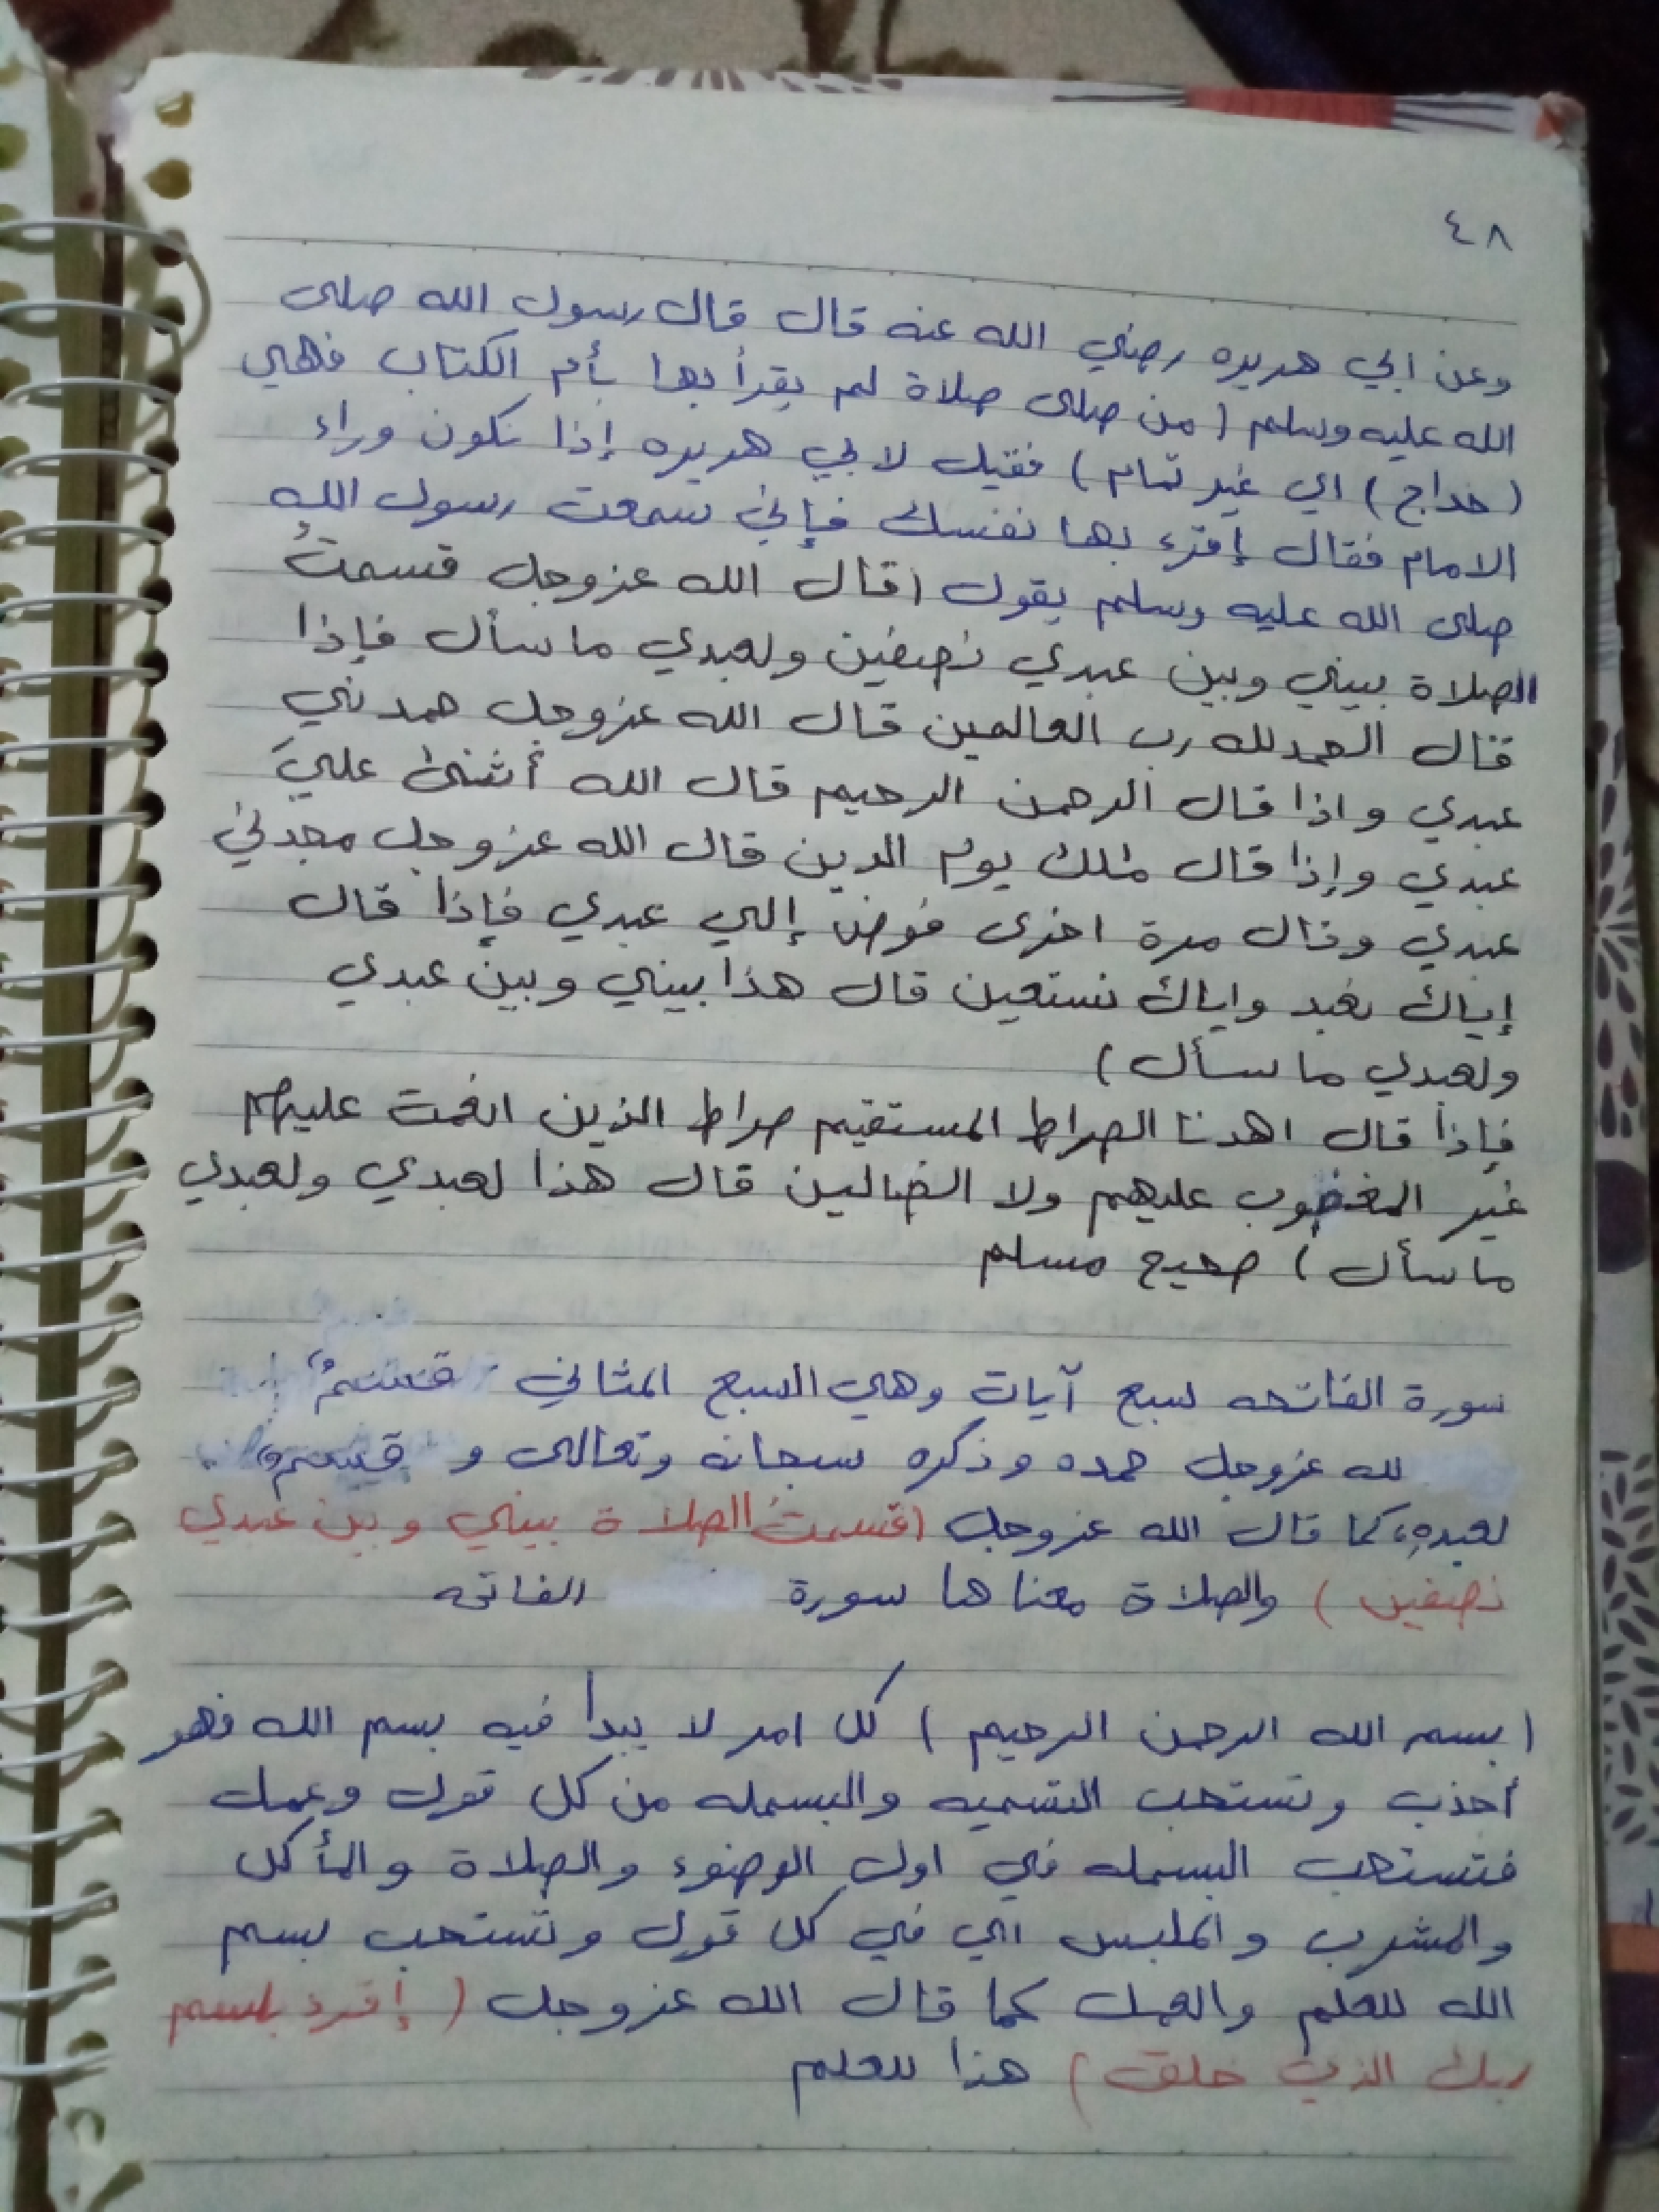 ٤٨
وعن ابي هريره رضي الله عنه قال قال رسول الله صلى
الله عليه وسلم (من صلى صلاة لم يقرأ بها بأم الكتاب فهي
(خداج) اي غير تمام) فقيل لابي هريره إذا نكون وراء
الامام فقال إقرء بها نفسك فإني سمعت رسول الله
صلى الله عليه وسلم يقول (قال الله عزوجل قسمتُ
الصلاة بيني وبين عبدي نصفين ولعبدي ما سأل فإذا
قال الحمدلله رب العالمين قال الله عزوجل حمدني
عبدي واذا قال الرحمن الرحيم قال الله أثنى عليَ
عبدي وإذا قال ملك يوم الدين قال الله عزوجل مجدني
عبدي وقال مرة اخرى فوض إلي عبدي فإذا قال
إياك نعبد واياك نستعين قال هذا بيني وبين عبدي
ولعبدي ما سأل)
فإذا قال اهدنا الصراط المستقيم صراط الذين انعمت عليهم
غير المغضوب عليهم ولا الضالين قال هذا لعبدي ولعبدي
ما سأل) صحيح مسلم
سورة الفاتحه سبع آيات وهي السبع المثاني قسمٌ
لله عزوجل حمده وذكره سبحانه وتعالى و قسم
لعبدهِ، كما قال الله عزوجل (قسمتُ الصلاة بيني وبين عبدي
نصفين) والصلاة معناها سورة الفاتحه
(بسم الله الرحمن الرحيم) كل امر لا يبدأ فيه بسم الله فهو
أجذب وتستحب التسميه والبسمله من كل قول وعمل
فتستحب البسمله في اول الوضوء والصلاة والمأكل
والمشرب والملبس اي في كل قول وتستحب بسم
الله للعلم والعمل كما قال الله عزوجل (إقرء بإسم
ربك الذي خلق) هذا للعلم